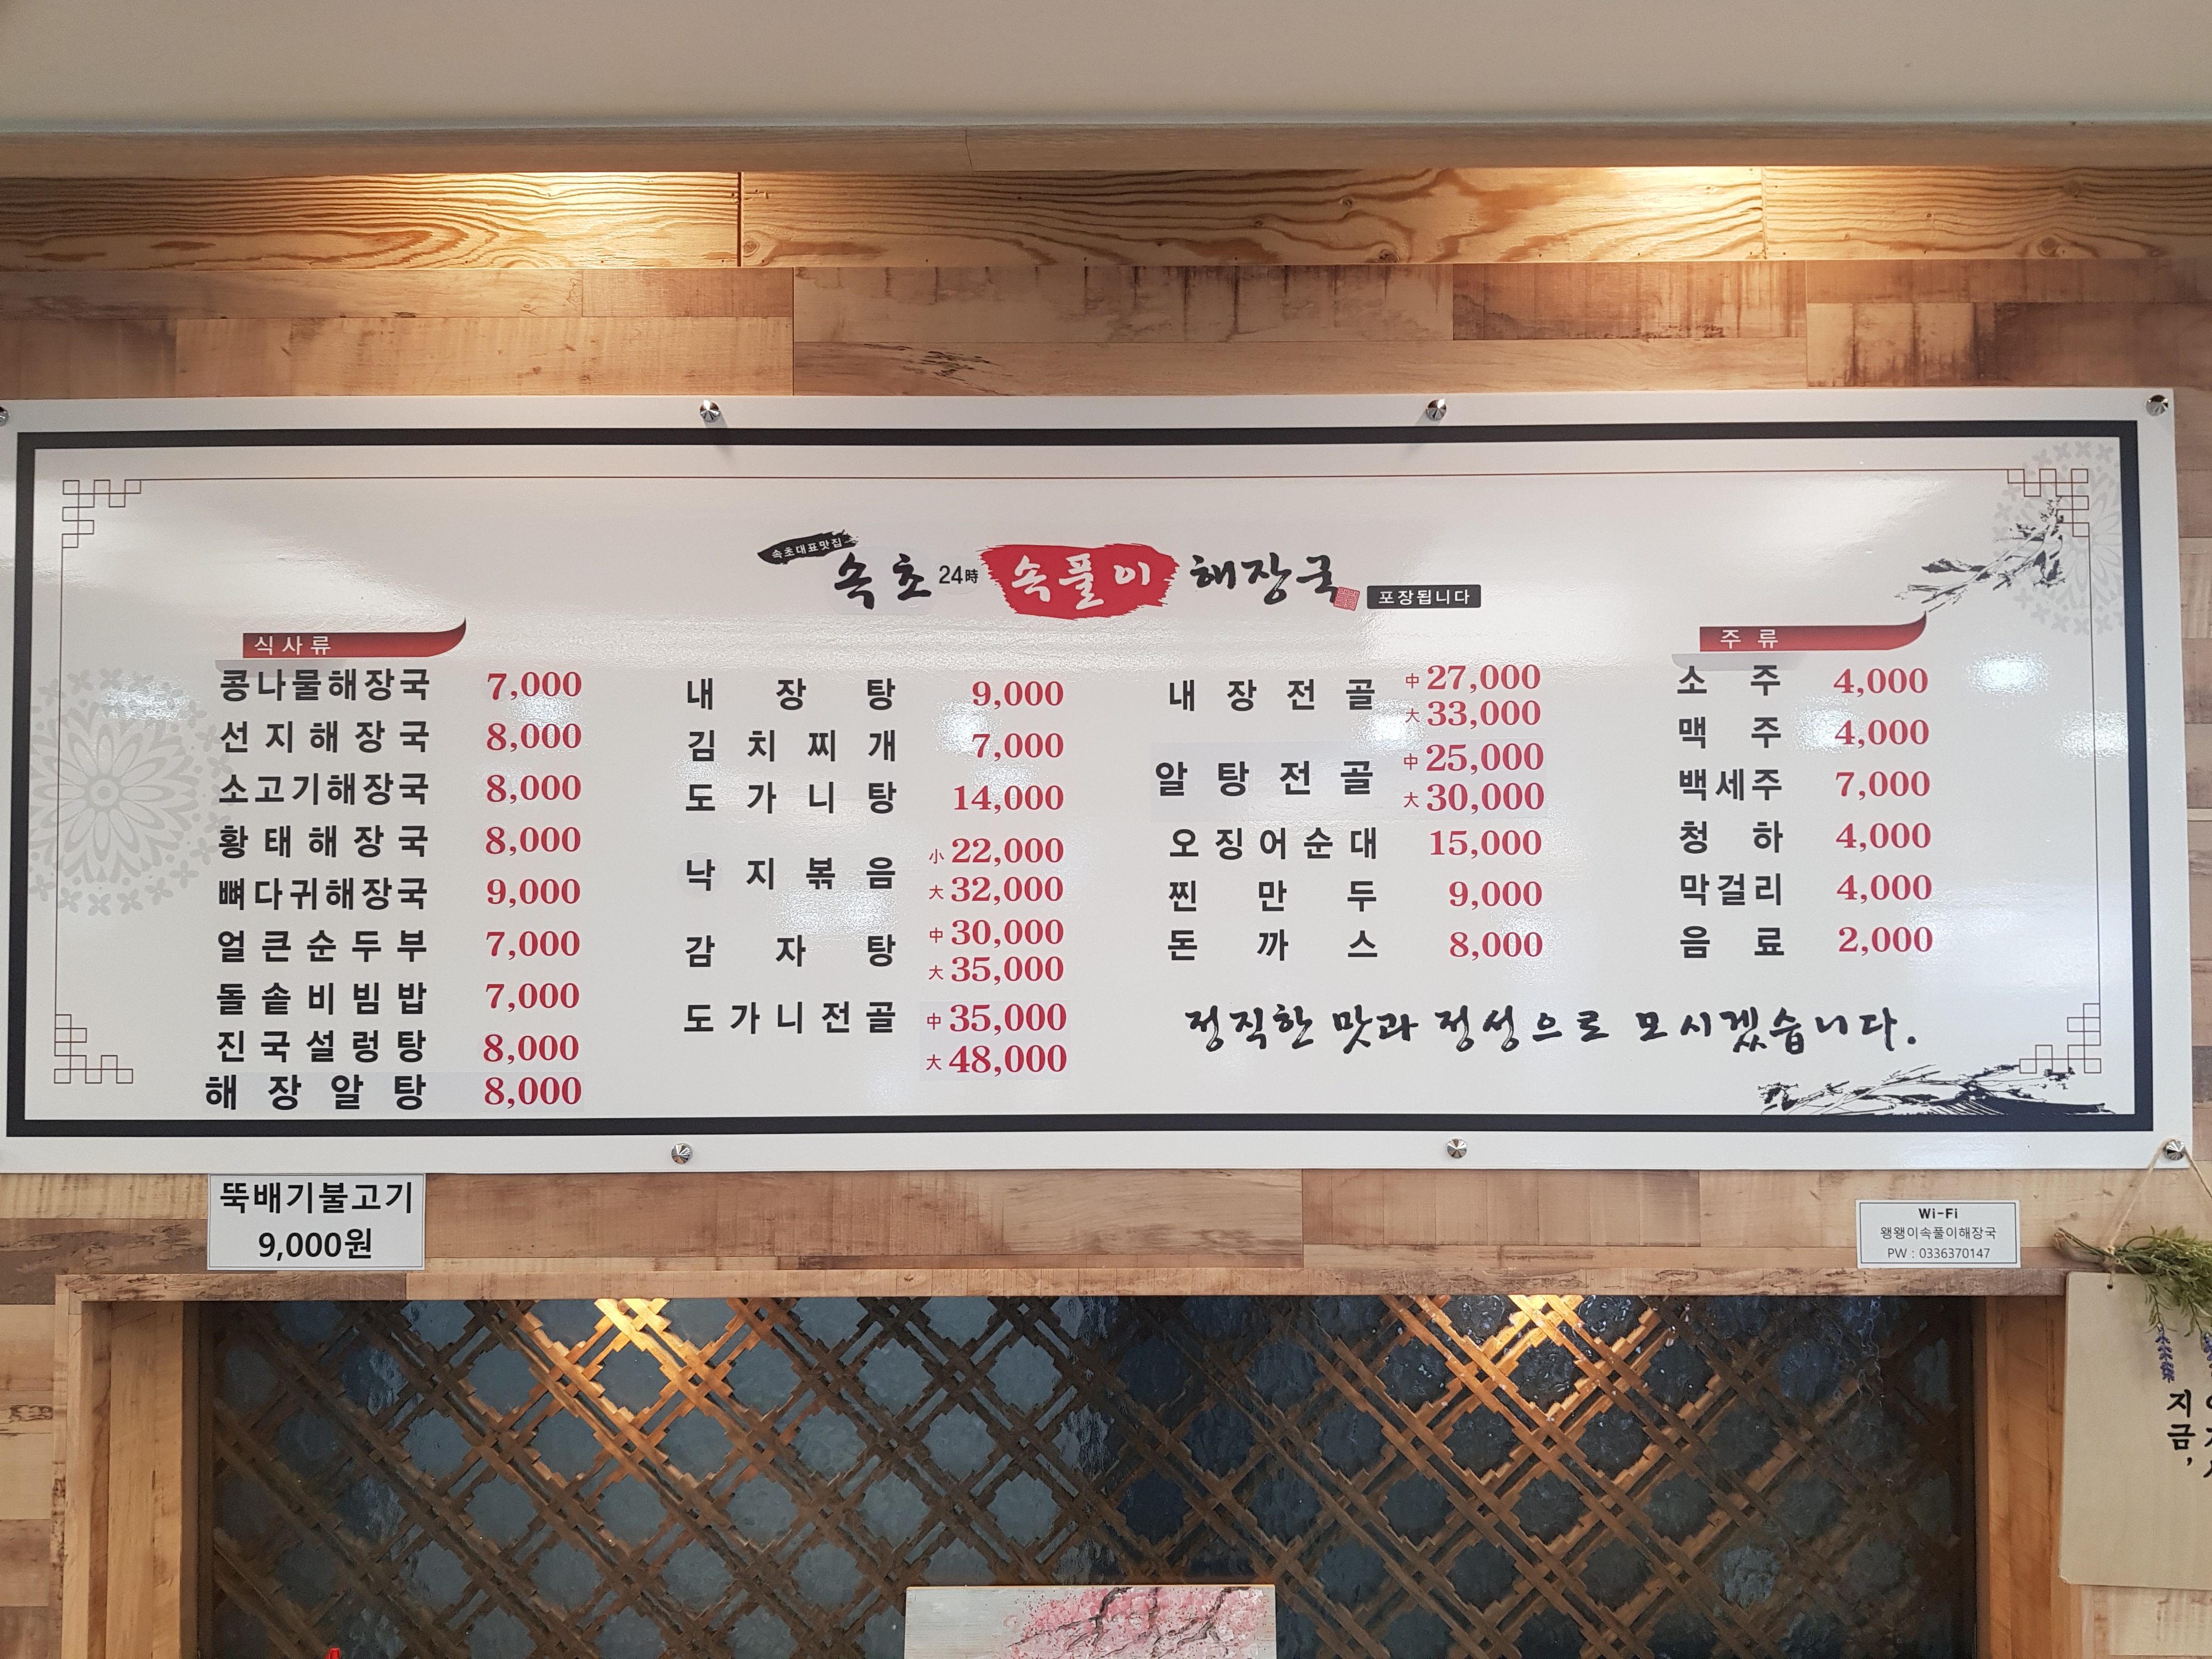 속초대표맛집
속초 24時 속풀이 해장국 포장됩니다
식사류
콩나물해장국 7,000
선지해장국 8,000
소고기해장국 8,000
황태해장국 8,000
뼈다귀해장국 9,000
얼큰순두부 7,000
돌솥비빔밥 7,000
진국설렁탕 8,000
해장알탕 8,000
내장탕 9,000
김치찌개 7,000
도가니탕 14,000
낙지볶음 小 22,000
大 32,000
감자탕 中 30,000
大 35,000
도가니전골 中 35,000
大 48,000
내장전골 中 27,000
大 33,000
알탕전골 中 25,000
大 30,000
오징어순대 15,000
찐만두 9,000
돈까스 8,000
주류
소주 4,000
맥주 4,000
백세주 7,000
청하 4,000
막걸리 4,000
음료 2,000
정직한 맛과 정성으로 모시겠습니다.
뚝배기불고기
9,000원
Wi-Fi
왱왱이속풀이해장국
PW : 0336370147
지금,